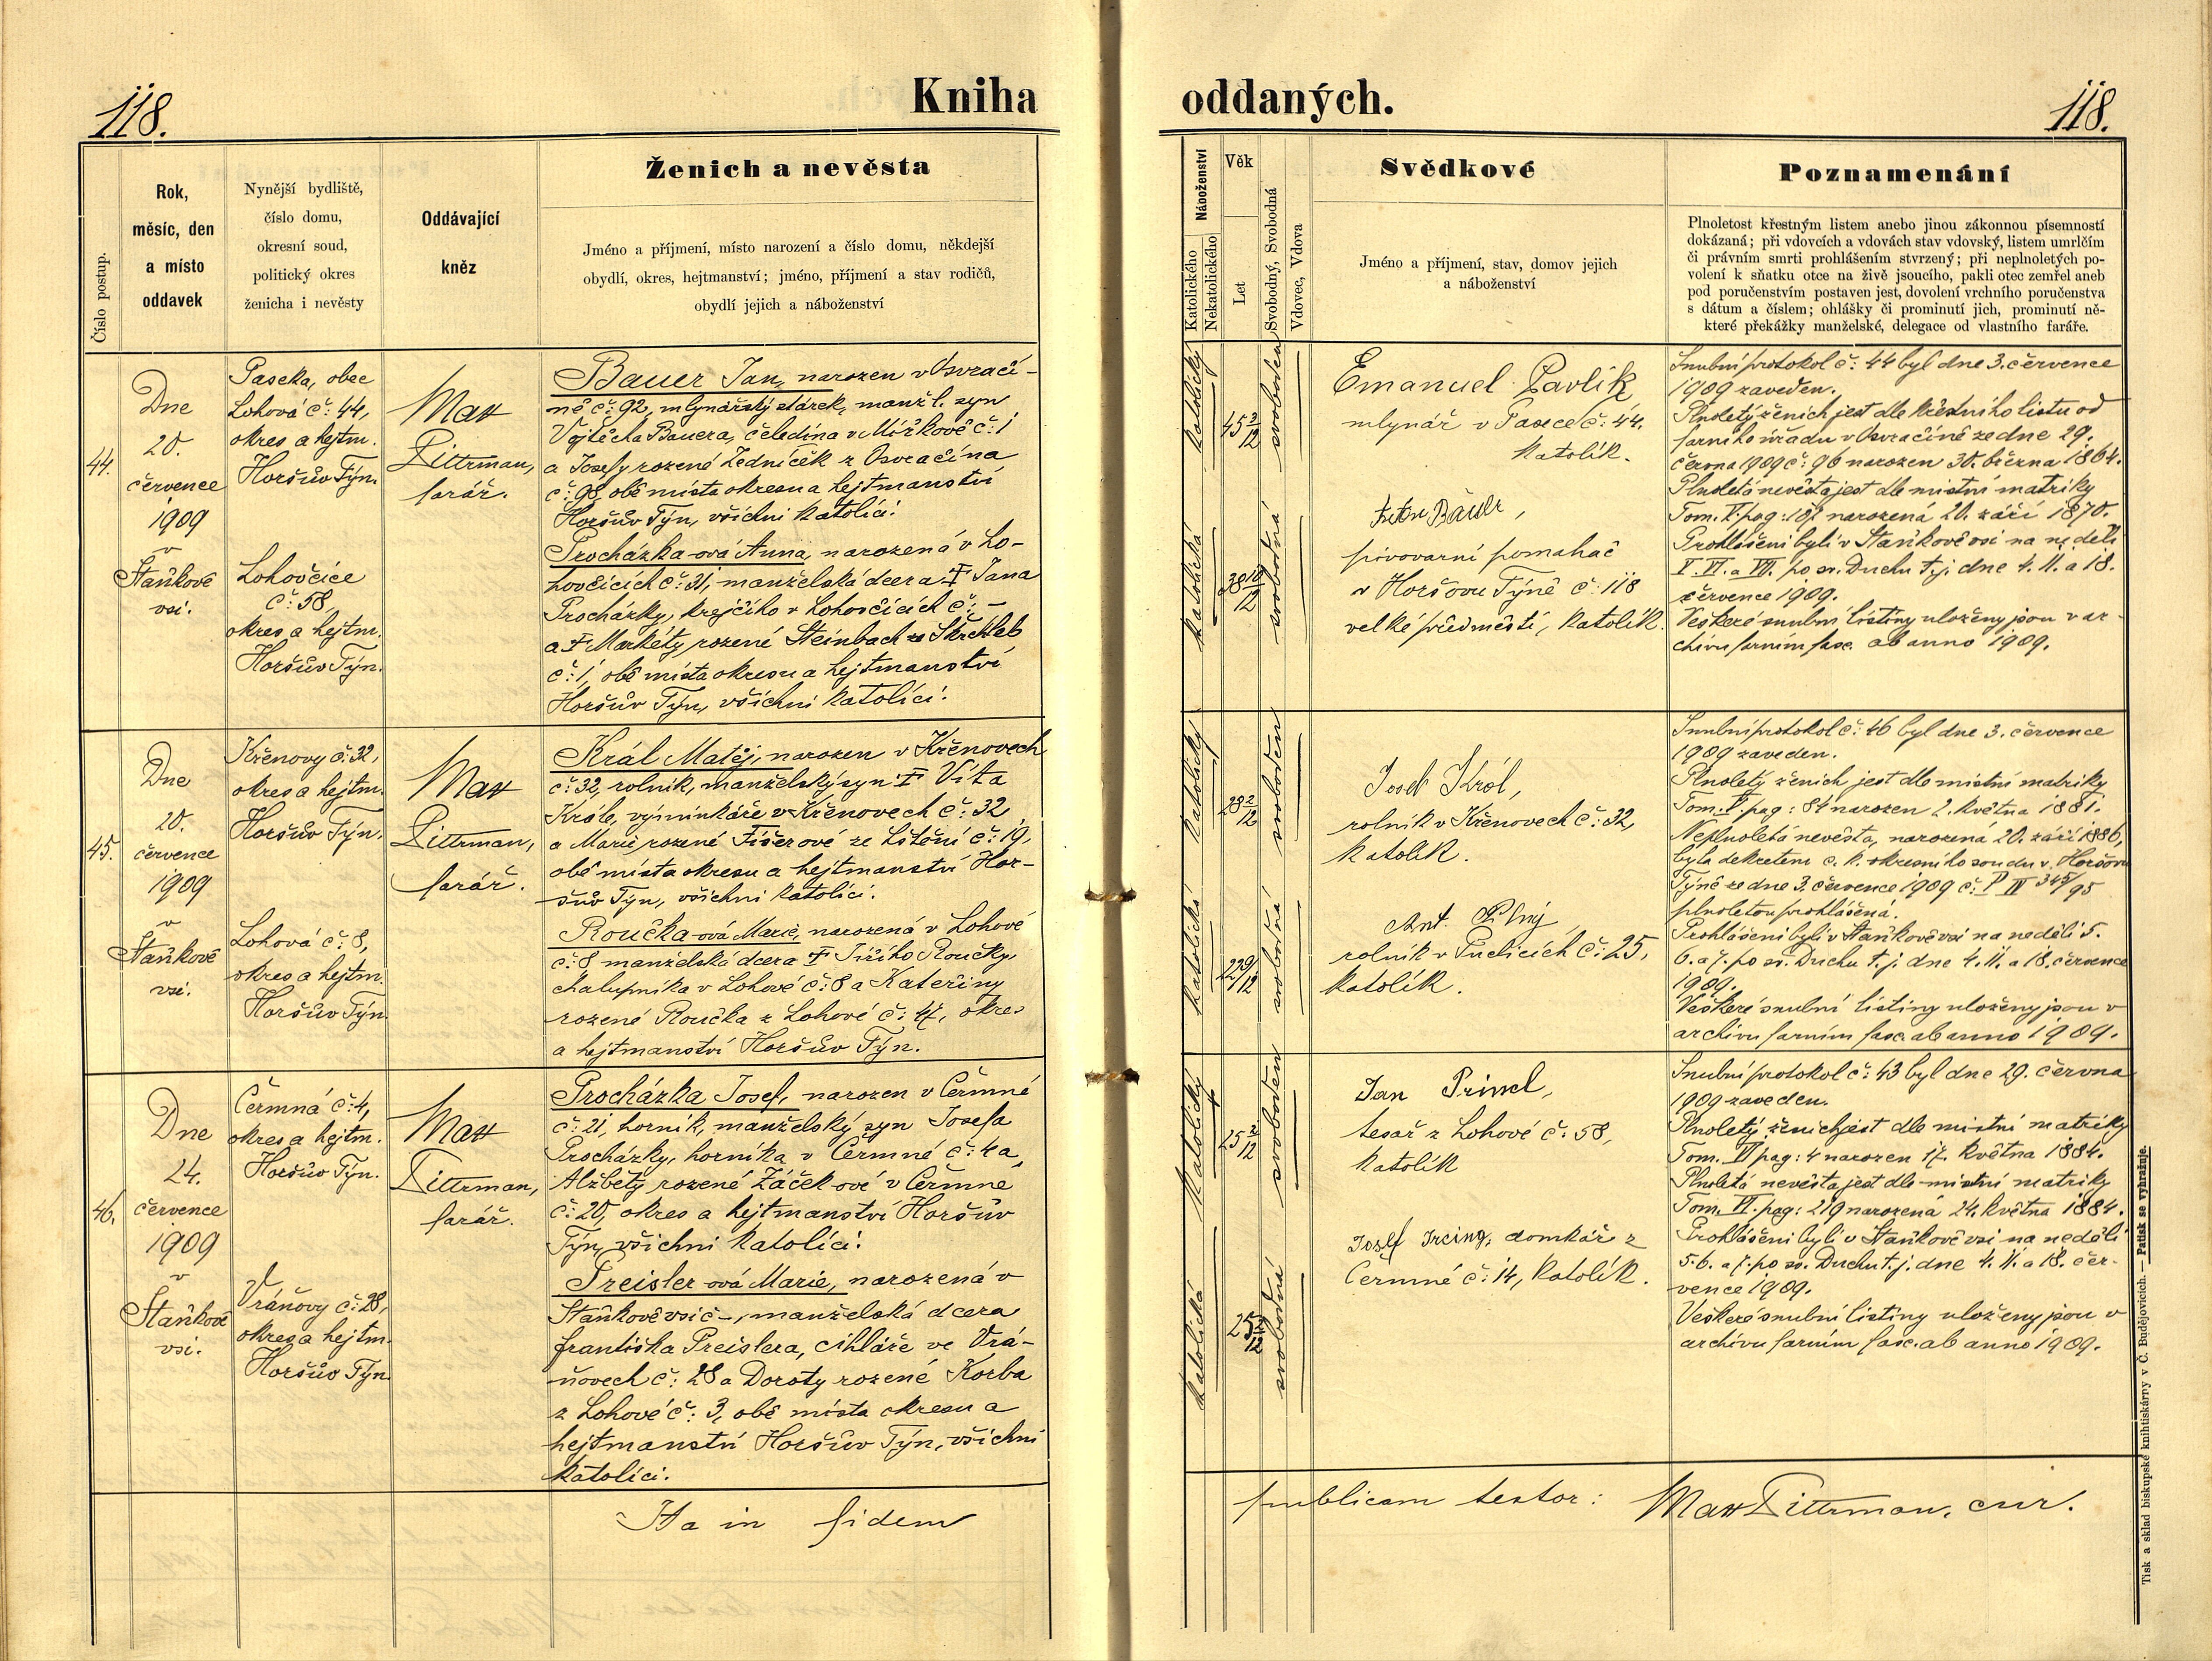 118.
Kniha
Číslo postup.
Rok,
měsíc, den
a místo
oddavek
Nynější bydliště,
číslo domu,
okresní soud,
politický okres
ženicha i nevěsty
Oddávající
kněz
Ženich a nevěsta
Jméno a příjmení, místo narození a číslo domu, někdejší
obydlí, okres, hejtmanství; jméno, příjmení a stav rodičů,
obydlí jejich a náboženství
44.
Dne
20.
července
1909
v
Staňkově
vsi.
Paseka, obec
Lohová č: 44,
okres a hejtm.
Horšův Týn.
Lohovčice
č: 58,
okres a hejtm.
Horšův Týn.
Max
Dittrman,
farář.
Bauer Jan, narozen v Osvrači-
ně č: 92, mlynářský stárek, manžl. syn
Vojtěcha Bauera, čeledína v Mířkově č: 1
a Josefy rozené Zedníček z Osvračína
č: 98, obě místa okresu a hejtmanství
Horšův Týn, všichni katolíci.
Procházka-ová Anna, narozená v Lo-
hovčicích č: 31, manželská dcera † Jana
Procházky, krejčího v Lohovčicích č: -
a † Markéty rozené Steinbach ze Skřchleb
č: 1, obě místa okresu a hejtmanství
Horšův Týn, všichni katolíci.
45.
Dne
20.
července
1909
v
Staňkově
vsi.
Křenovy č: 32,
okres a hejtm.
Horšův Týn.
Lohová č: 8,
okres a hejtm.
Horšův Týn
Max
Dittrman,
farář.
Král Matěj, narozen v Křenovech
č: 32, rolník, manželský syn † Víta
Krále, výminkáře v Křenovech č: 32,
a Marie rozené Fišerové ze Lštění č: 19,
obě místa okresu a hejtmanství Hor-
šův Týn, všichni katolíci.
Roučka-ová Marie, narozená v Lohové
č: 8 manželská dcera † Jiřího Roučky,
chalupníka v Lohové č: 8 a Kateřiny
rozené Roučka z Lohové č: 47, okres
a hejtmanství Horšův Týn.
46.
Dne
24.
července
1909
v
Staňkově
vsi.
Čermná č: 4,
okres a hejtm.
Horšův Týn.
Vráňovy č: 28,
okres a hejtm.
Horšův Týn
Max
Dittrman,
farář.
Procházka Josef, narozen v Čermné
č: 21, horník, manželský syn Josefa
Procházky, horníka v Čermné č: 4 a
Alžběty rozené Žáček-ové v Čermné
č: 20, okres a hejtmanství Horšův
Týn, všichni katolíci.
Preisler-ová Marie, narozená v
Staňkově vsi č -, manželská dcera
františka Preislera, cihláře ve Vrá-
ňovech č: 28 a Doroty rozené Korba
z Lohové č: 3, obě místa okresu a
hejtmanství Horšův Týn, všichni
katolíci.
Ita in fidem
oddaných.
118.
Náboženství
Katolického
Nekatolického
Věk
Let
Svobodný, Svobodná
Vdovec, Vdova
Svědkové
Jméno a příjmení, stav, domov jejich
a náboženství
Poznamenání
Plnoletost křestným listem anebo jinou zákonnou písemností
dokázaná; při vdovcích a vdovách stav vdovský, listem umrlčím
či právním smrti prohlášením stvrzený; při neplnoletých po-
volení k sňatku otce na živě jsoucího, pakli otec zemřel aneb
pod poručenstvím postaven jest, dovolení vrchního poručenstva
s dátum a číslem; ohlášky či prominutí jich, prominutí ně-
které překážky manželské, delegace od vlastního faráře.
katolický
45 3/12
svoboden
Emanuel Pavlík,
mlynář v Pasece č: 44,
katolík.
katolická
38 10/12
svobodná
Bauer,
pivovarní pomahač
v Horšovu Týně č: 118
velké předměstí, katolík.
Snubní protokol č: 44 byl dne 3. července
1909 zaveden.
Plnoletý ženich jest dle křestního listu od
farního úřadu v Osvračíně ze dne 29.
června 1909 č: 96 narozen 30. března 1864.
Plnoletá nevěsta jest dle místní matriky
Tom. V. pag: 107 narozená 20. září 1870.
Prohlášeni byli v Staňkově vsi na neděli
V. VI. a VII. po sv. Duchu t.j. dne 4. 11. a 18.
července 1909.
Veškeré snubní listiny uloženy jsou v ar-
chivu farním fasc. ab anno 1909.
katolický
28 2/12
svoboden
Josef Král,
rolník v Křenovech č: 32,
katolík.
katolická
22 9/12
svobodná
Ant. Plný
rolník v Puclicích č: 25,
katolík.
Snubní protokol č: 46 byl dne 3. července
1909 zaveden.
Plnoletý ženich jest dle místní matriky
Tom. V. pag: 84 narozen 2. května 1881.
Neplnoletá nevěsta, narozená 20. září 1886,
byla dekretem c. k. okresního soudu v Horšovu
Týně ze dne 3. července 1909 č: P IV 345/95
plnoletou prohlášená.
Prohlášeni byli v Staňkově vsi na neděli 5.
6. a 7. po sv. Duchu t. j. dne 4. 11. a 18. července
1909.
Veškeré snubní listiny uloženy jsou v
archivu farním fasc. ab anno 1909.
katolický
25 2/12
svoboden
Jan Primel,
tesař z Lohové č: 58,
katolík
katolická
25 2/12
svobodná
Josef Ircing, domkář z
Čermné č: 14, katolík.
Snubní protokol č: 43 byl dne 29. června
1909 zaveden.
Plnoletý ženich jest dle místní matriky
Tom. VI pag: 4 narozen 17. května 1884.
Plnoletá nevěsta jest dle místní matriky
Tom. VI. pag: 219 narozená 24. května 1884.
Prohlášeni byli v Staňkově vsi na neděli
5. 6. a 7. po sv. Duchu t. j. dne 4. 11. a 18. čer-
vence 1909.
Veškeré snubní listiny uloženy jsou v
archivu farním fasc. ab anno 1909.
publicam testor: Max Dittrman, cur.
Tisk a sklad biskupské knihtiskárny v Č. Budějovicích. — Patisk se vyhražuje.